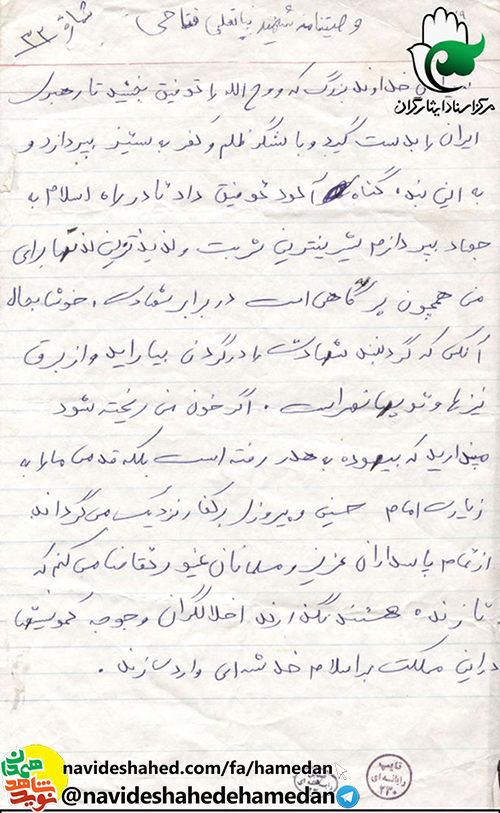 وصیتنامه شهید نیاتعلی فتاحی
شماره ۳۳
مرکز اسناد ایثارگران
سپاس خداوند بزرگ که روح الله را توفیق بخشید تا رهبری
ایران را بدست گیرد و با لشگر ظلم و کفر به ستیز بپردازد و
به این بنده گناه آلود توفیق داد تا در راه اسلام به
جهاد بپردازم شیرینترین شربت و لذیذترین لذتها برای
من همچون پرگاهی است در برابر شهادت، خوشا بحال
آنکس که گردنبند شهادت را در گردن بیاراید و از برق
نیزها و توپها نهراسد . اگر خون من ریخته شود
مپندارید که بیهوده به هدر رفته است بلکه قدمی ما را به
زیارت امام حسینی و پیروزی بر کفار نزدیک می گرداند
از تمام پاسداران عزیز و مسلمانان غیور تقاضا می کنم که
تا زنده هستند نگذارند اخلالگران وجوجه کمونیستها
در این مملکت بر اسلام خدشه ای وارد سازند .
تایپ
رایانه ای
۲۳۰
نوید شاهد همدان
navideshahed.com/fa/hamedan
@navideshahedehamedan